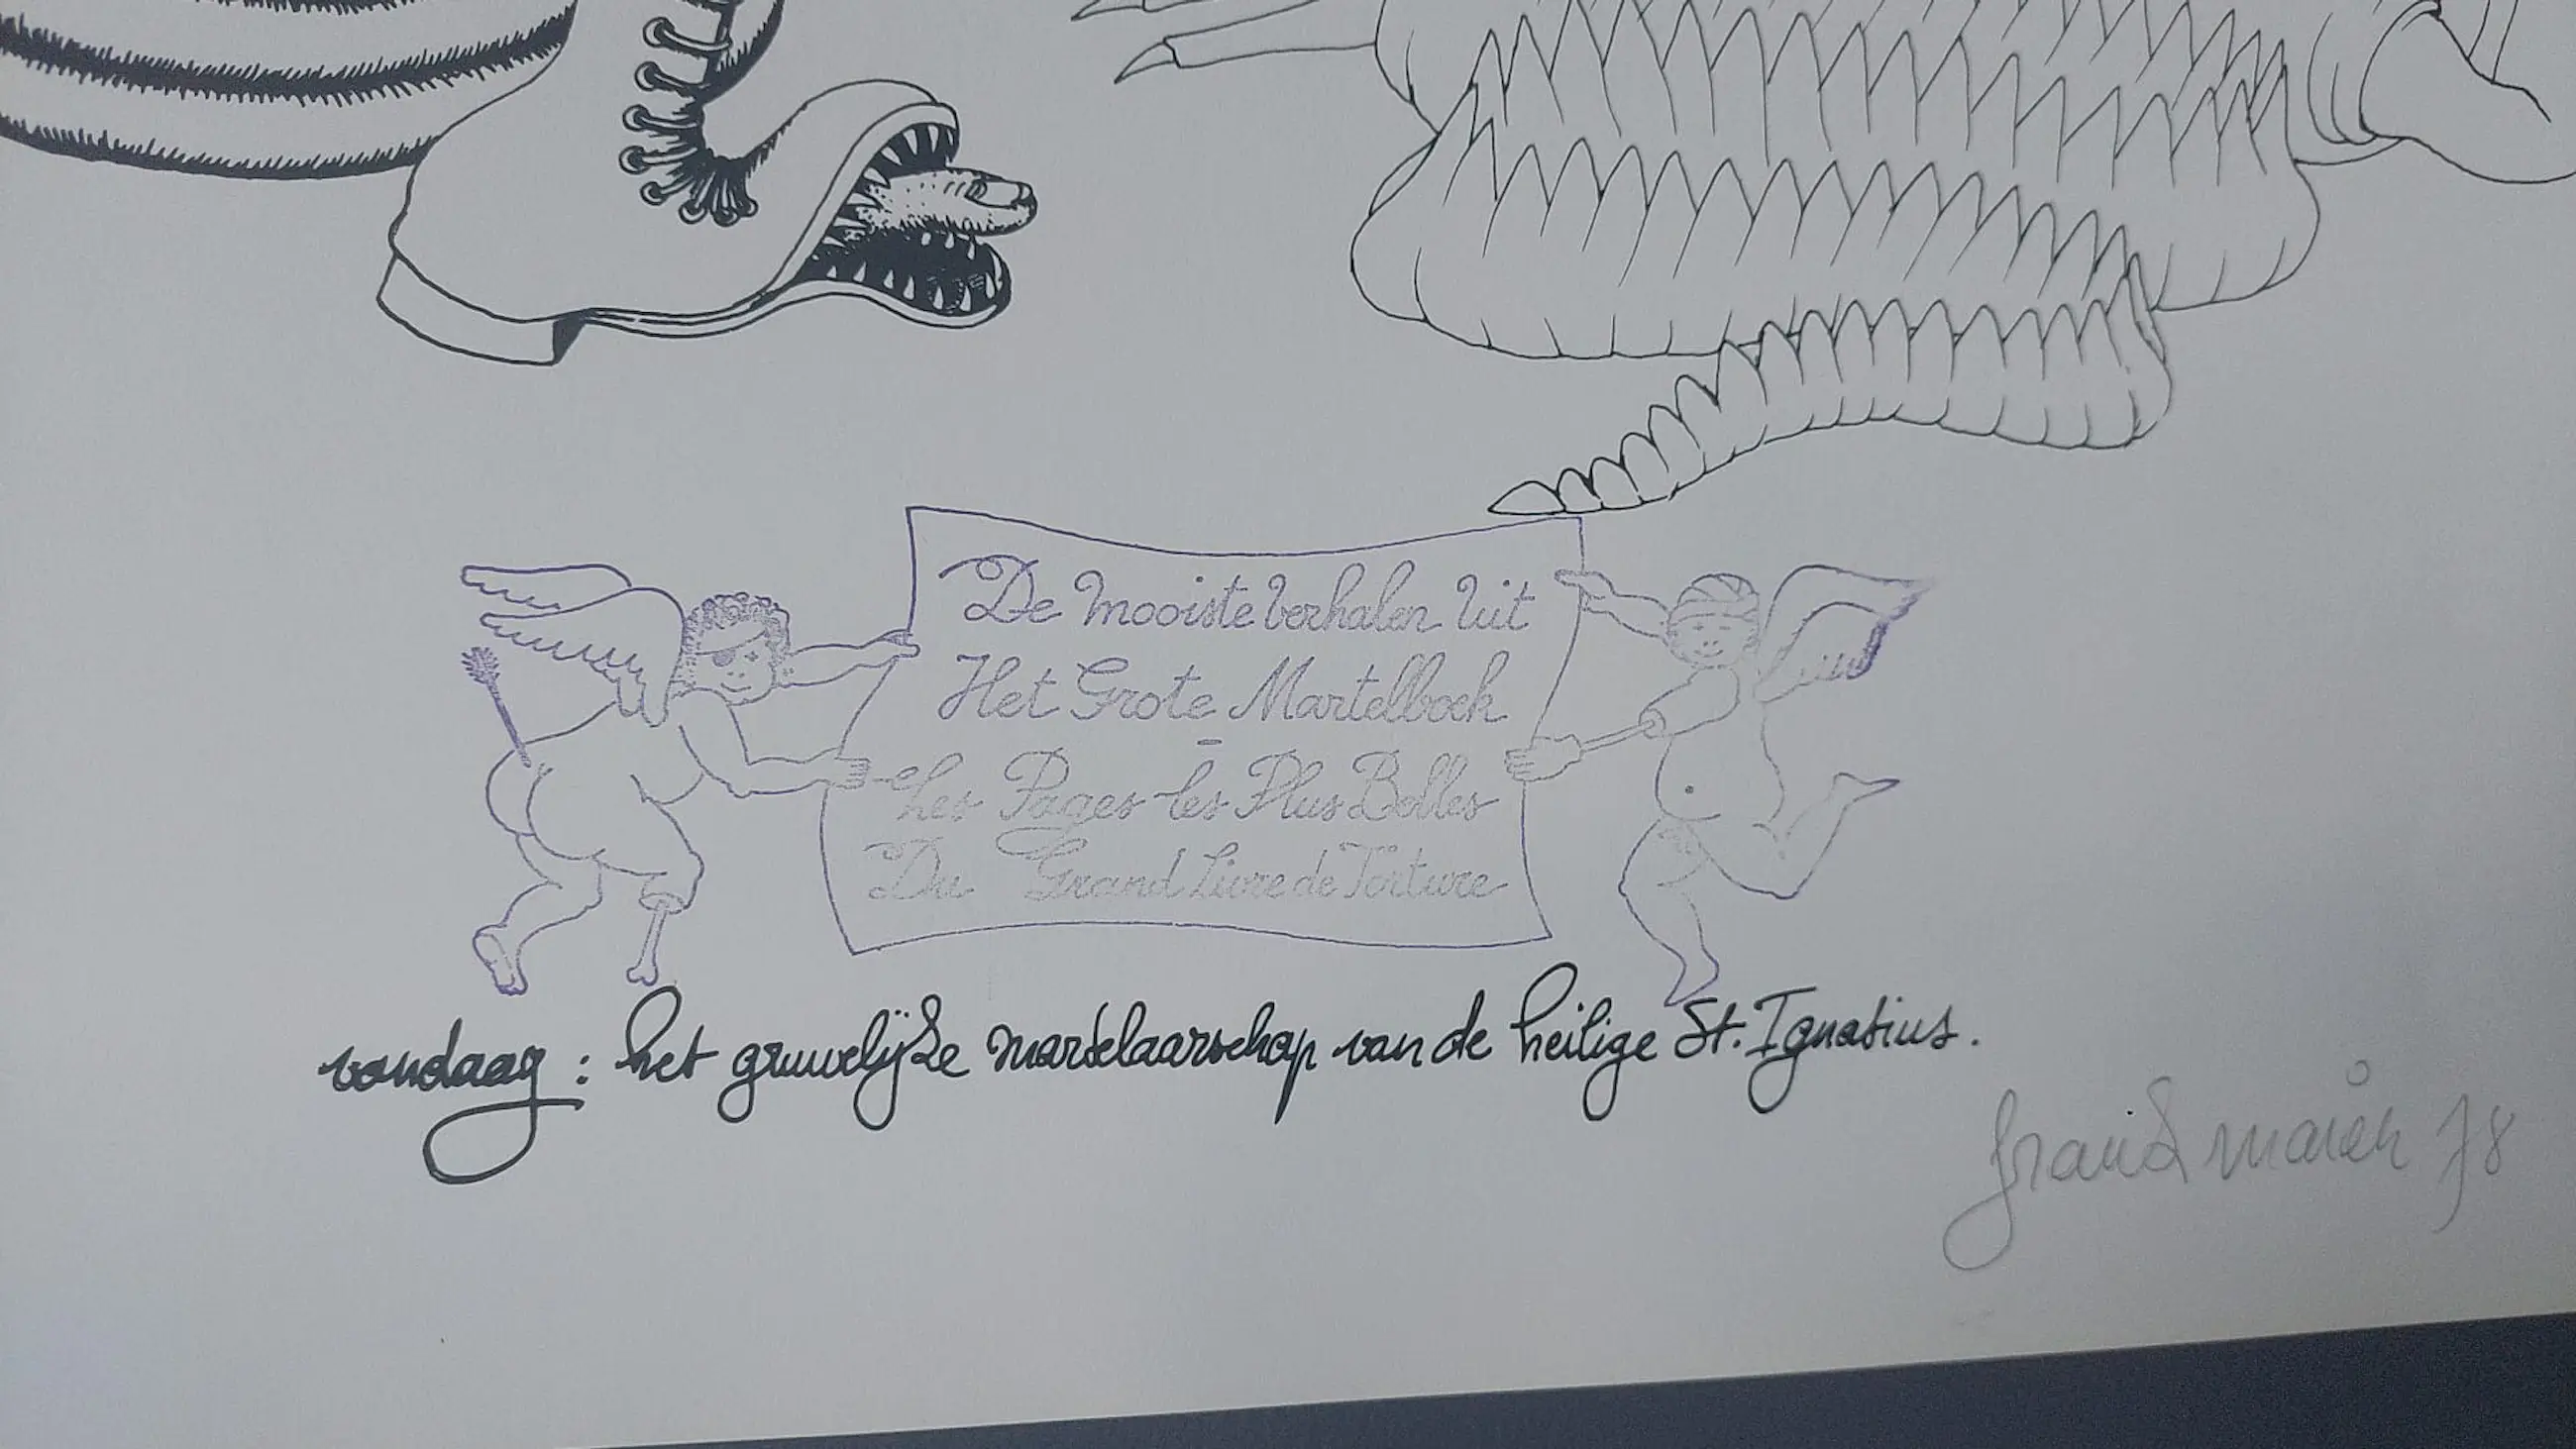 De Mooiste Verhalen Uit
Het Grote Martelboek
-
Les Pages les Plus Belles
Du Grand Livre de Torture
vandaag : het gruwelijke martelaarschap van de heilige St. Ignatius.
78